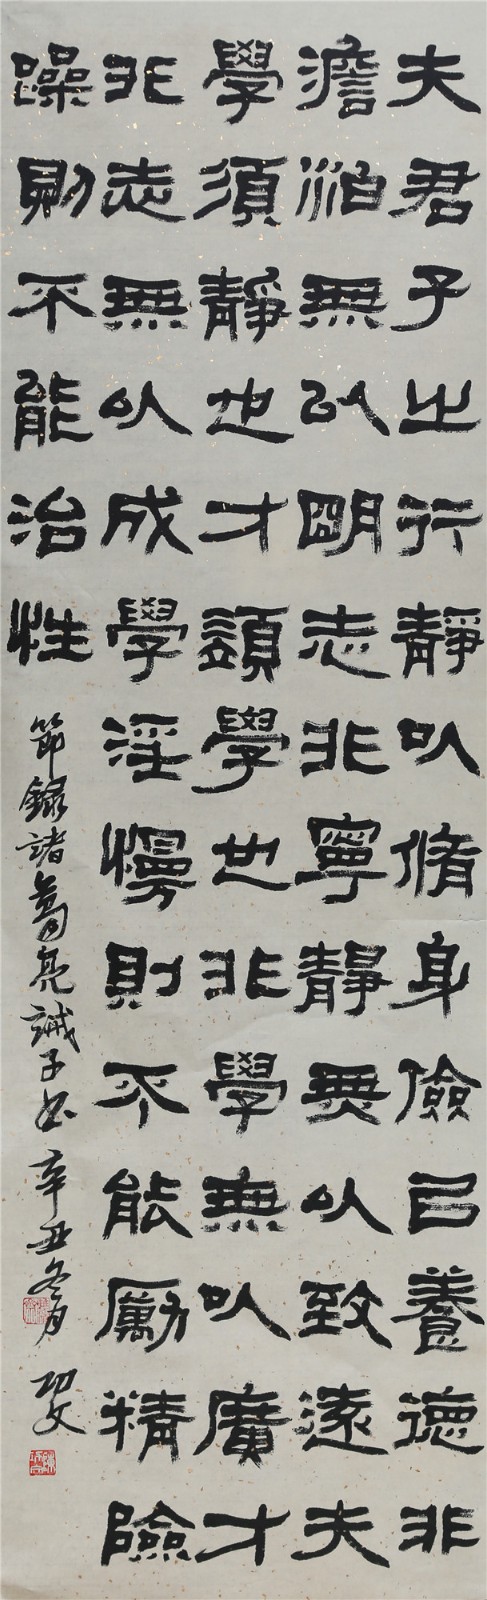 夫君子之行靜以脩身儉已養德非
澹泊無以明志非寧靜無以致遠夫
學須靜也才須學也非學無以廣才
非志無以成學淫慢則不能勵精險
躁則不能治性
節錄諸葛亮誡子書 辛丑冬月 功文